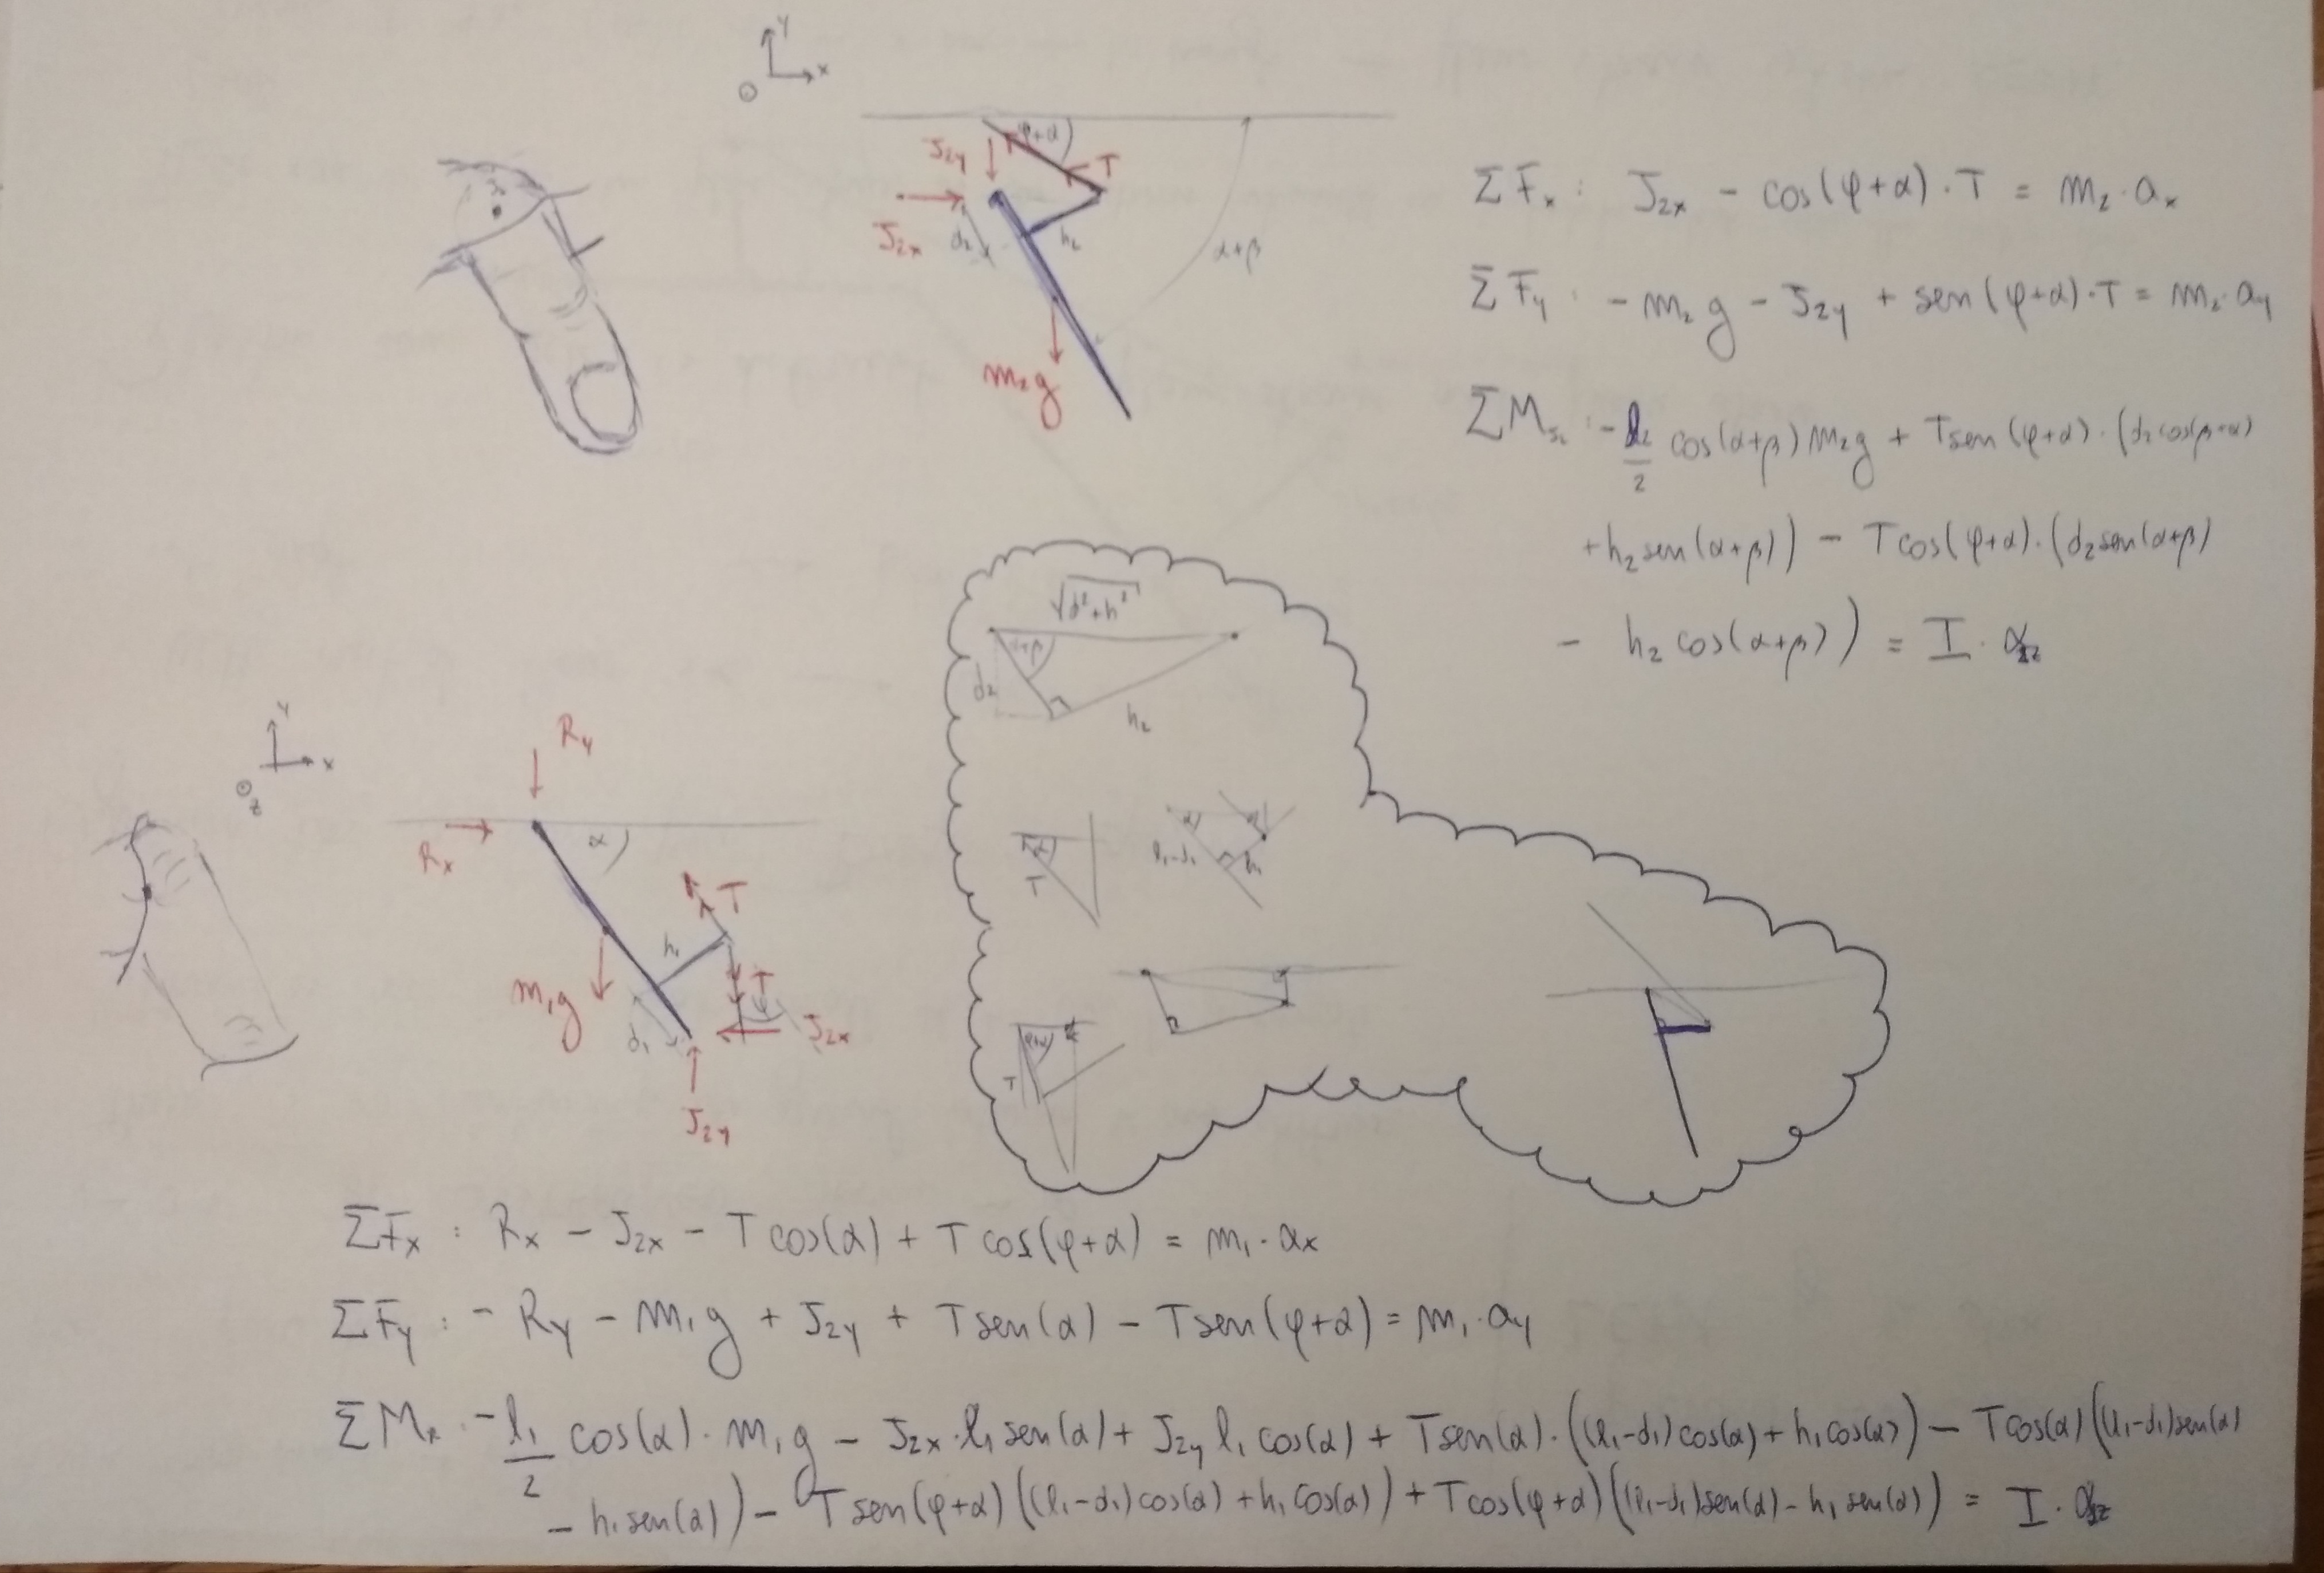 y
x
φ+α
J2y
T
J2x
d2
h2
α+β
m2g
ΣFx : J2x - cos(φ+α)·T = m2·ax
ΣFy : -m2g - J2y + sen(φ+α)·T = m2·ay
ΣMJ2 : -l2/2 cos(α+β)m2g + Tsen(φ+α)·(d2cos(β+α)
+h2sen(α+β)) - Tcos(φ+α)·(d2sen(α+β)
- h2cos(α+β)) = I·α2z
√d²+h²
α+β
d2
h2
y
x
z
Ry
Rx
α
T
h1
m1g
T
φ
d1
J2x
J2y
T
α
l1-d1
h1
φ+α
T
ΣFx : Rx - J2x - Tcos(α) + Tcos(φ+α) = m1·ax
ΣFy : -Ry - m1g + J2y + Tsen(α) - Tsen(φ+α) = m1·ay
ΣMR : -l1/2 cos(α)·m1g - J2x·l1sen(α) + J2y l1cos(α) + Tsen(α)·((l1-d1)cos(α)+h1cos(α)) - Tcos(α)((l1-d1)sen(α)
- h1sen(α)) - Tsen(φ+α)((l1-d1)cos(α)+h1cos(α)) + Tcos(φ+α)((l1-d1)sen(α)-h1sen(α)) = I·α1z